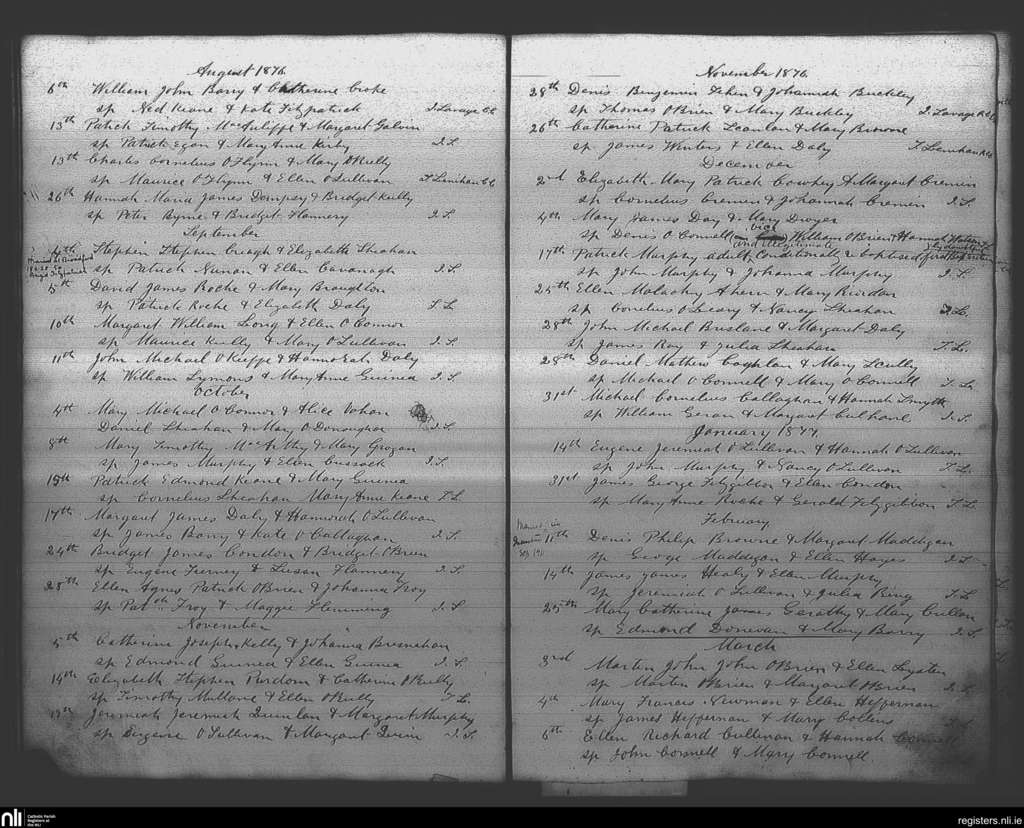 August 1876
6th William John Barry & Catherine Croke
sp Ned Keane & Kate Fitzpatrick J Savage CC
13th Patrick Timothy McAuliffe & Margaret Galvin
sp Patrick Egan & Mary Anne Kirby J. S.
13th Charles Cornelius O'Flynn & Mary O'Reilly
sp Maurice O'Flynn & Ellen O'Sullivan T Lenihan CC
26th Hannah Maria James Dempsey & Bridget Kelly
sp Peter Byrne & Bridget Flannery J. S
September
4th Stephen Stephen Creagh & Elizabeth Sheahan
sp Patrick Nunan & Ellen Cavanagh J. S
5th David James Roche & Mary Broughton
sp Patrick Roche & Elizabeth Daly T L
10th Margaret William Long & Ellen O'Connor
sp Maurice Kielly & Mary O'Sullivan J. S.
11th John Michael O'Keeffe & Hannorah Daly
sp William Symons & Mary Anne Guinea J. S.
October
4th Mary Michael O'Connor & Alice Vohan
Daniel Sheahan & Mary O'Donoughue J. S.
8th Mary Timothy McArthy & Mary Grogan
sp James Murphy & Ellen Cussack J. S.
15th Patrick Edmond Keane & Mary Guinea
sp Cornelius Sheahan Mary Anne Keane T L
17th Margaret James Daly & Hannorah O'Sullivan
sp James Barry & Kate O'Callaghan J. S
24th Bridget James Condon & Bridget O'Brien
sp Eugene Tierney & Susan Flannery J. S
28th Ellen Agnes Patrick O'Brien & Johanna Troy
sp Patck Troy & Maggie Flemming J. S
November
5th Catherine Joseph Kelly & Johanna Bresnahan
sp Edmond Guinea & Ellen Guinea J. S
14th Elizabeth Stephen Riordan & Catherine O'Reilly
sp Timothy Mullane & Ellen O'Reilly T L.
19th Jeremiah Jeremiah Quinlan & Margaret Murphy
sp Eugene O'Sullivan & Margaret Quin J. S
November 1876
28th Denis Benjamin & Johannah Buckley
sp Thomas O'Brien & Mary Buckley J. Savage R.C.C.
26th Catherine Patrick Scanlan & Mary Browne
sp James Winters & Ellen Daly T Lenihan R.C.C
December
2nd Elizabeth Mary Patrick Cowhey & Margaret Cremin
sp Cornelius Cremin & Johannah Cremin J. S
4th Mary James Day & Mary Dwyer
sp Denis O'Connell vice William O'Brien & Hannah
and illegitimate
17th Patrick Murphy adult Conditionally baptised
sp John Murphy & Johanna Murphy J. S
25th Ellen Malachy Ahern & Mary Riordan
sp Cornelius O'Leary & Nancy Sheahan T L.
28th John Michael Brislane & Margaret Daly
sp James Roy & Julia Sheahan T. L.
28th Daniel Mathew Coughlan & Mary Scully
sp Michael O'Connell & Mary O'Connell T L
31st Michael Cornelius Callaghan & Hannah Smyth
sp William Geran & Margaret Culhane J. S
January 1877
14th Eugene Jeremiah O'Sullivan & Hannah O'Sullivan
sp John Murphy & Nancy O'Sullivan T L.
31st James George Fitzgibbon & Ellen Condon
sp Mary Anne Roche & Gerald Fitzgibbon T L
February
11th Denis Philip Browne & Margaret Maddigan
sp George Maddigan & Ellen Hayes J. S
14th James James Healy & Ellen Murphy
sp Jeremiah O'Sullivan & Julia Barry J. S
25th Mary Catherine James Geratty & Mary Cullen
sp Edmond Donevan & Mary Barry J. S
March
3rd Martin John John O'Brien & Ellen Lyster
sp Martin O'Brien & Margaret O'Brien J. S
4th Mary Francis Newman & Ellen Heffernan
sp James Heffernan & Mary Collens J. S
6th Ellen Richard Cullinan & Hannah Connell
sp John Connell & Mary Connell
nli Catholic Parish Registers at the NLI
registers.nli.ie